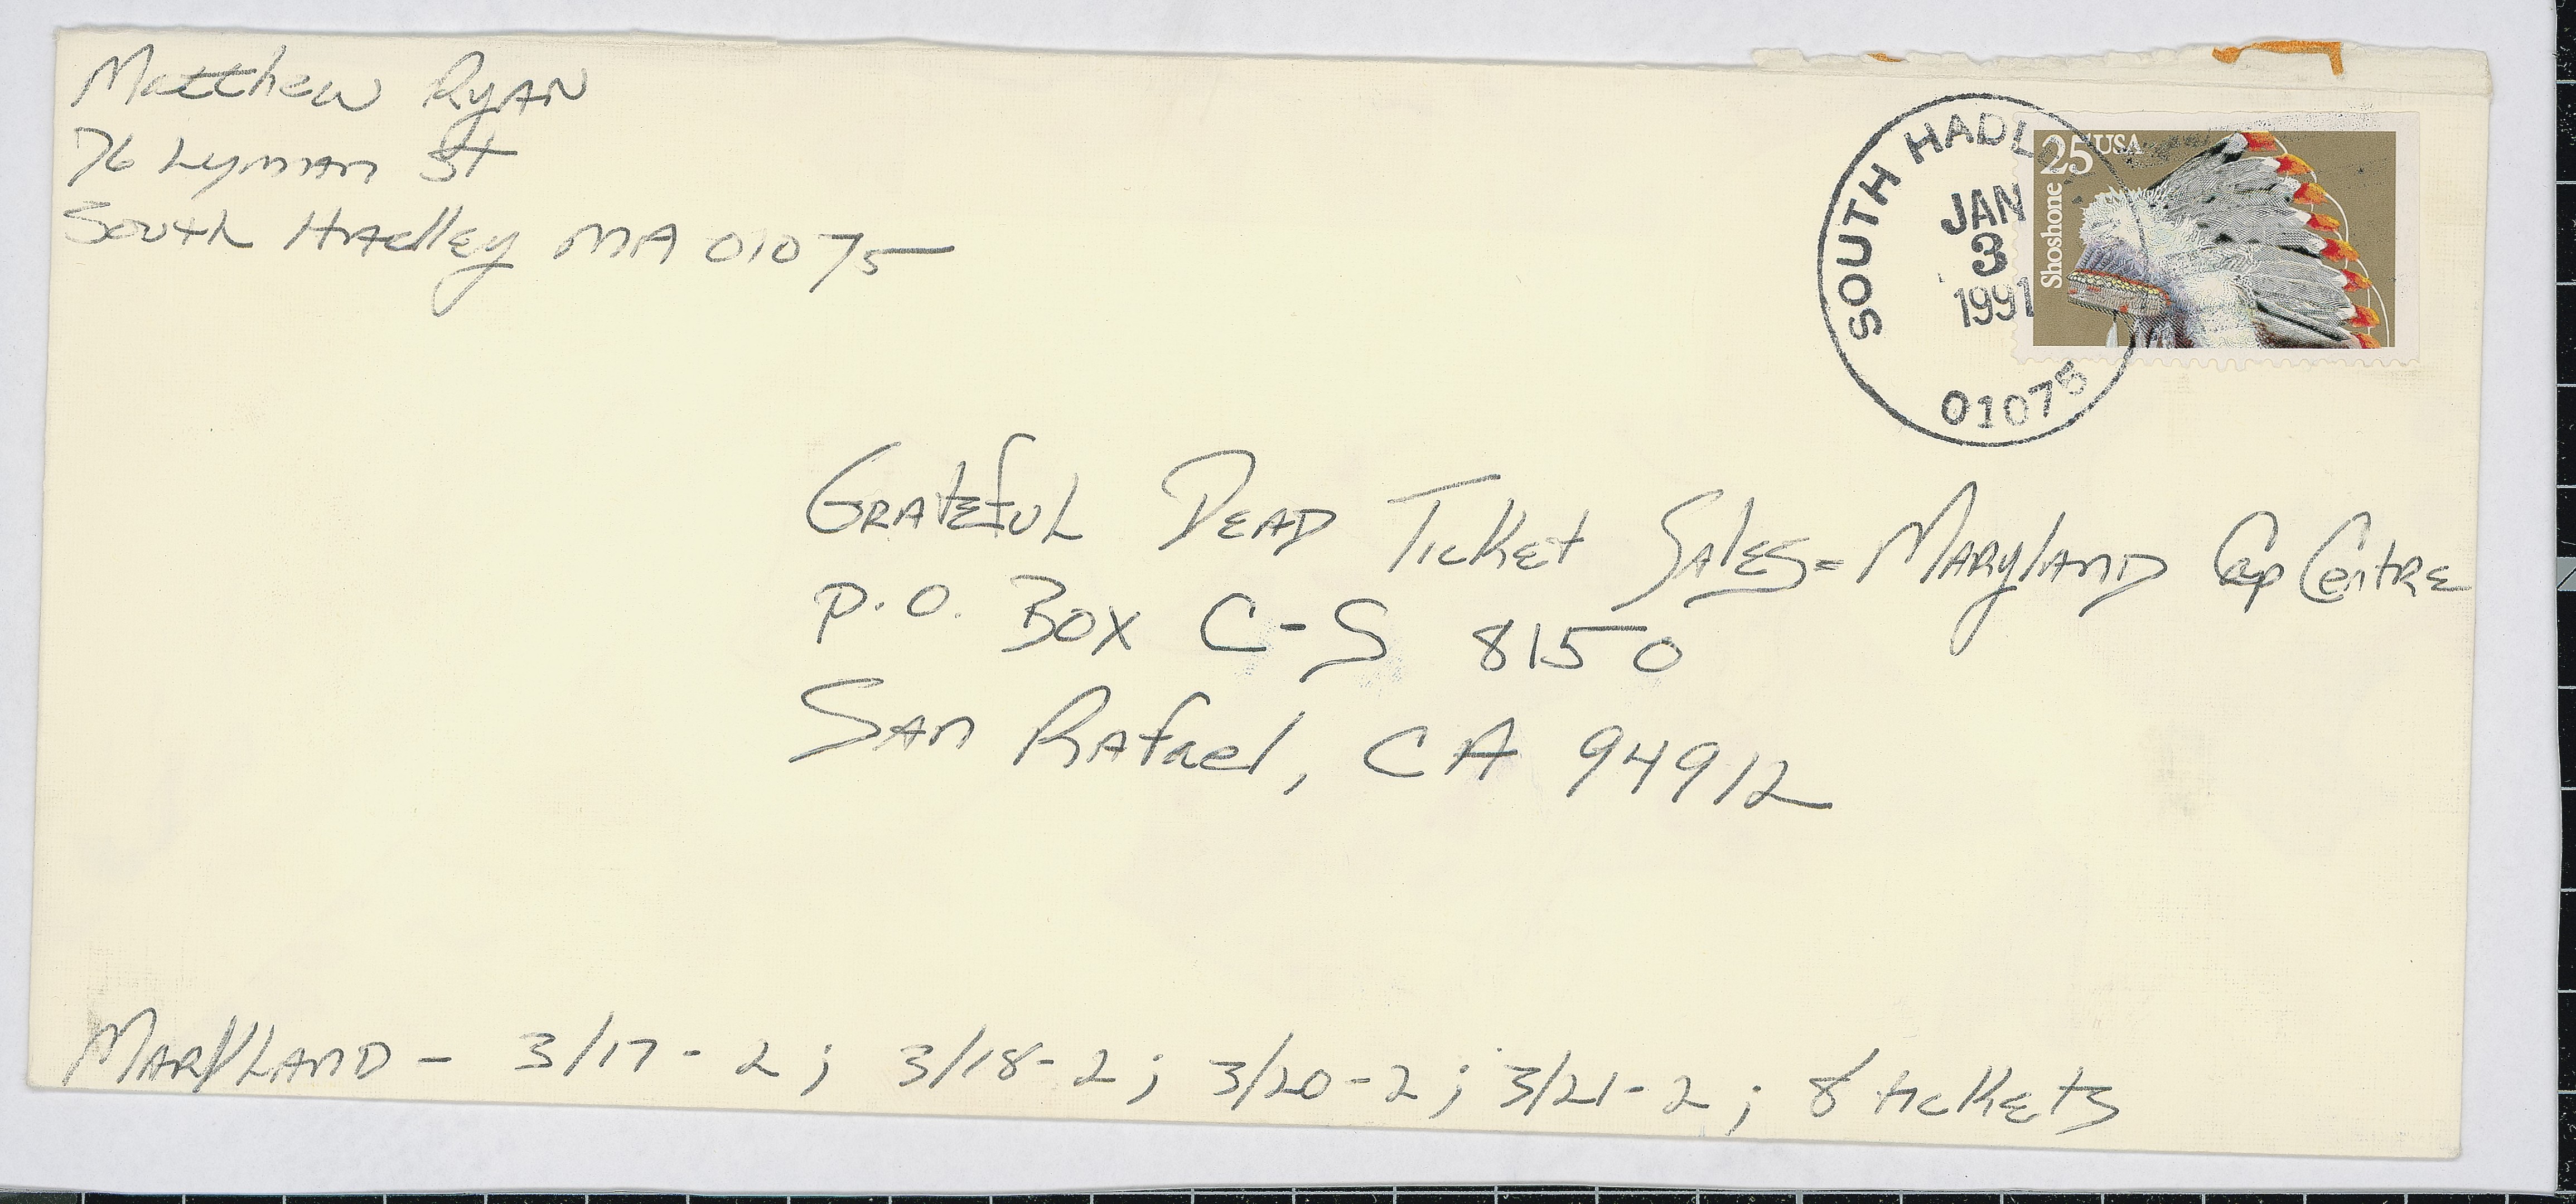 Matthew Ryan
76 Lyman St
South Hadley MA 01075
SOUTH HADL
JAN
3
1991
01075
25 USA
Shoshone
Grateful Dead Ticket Sales = Maryland Cap Centre
P.O. Box C-S 8150
San Rafael, CA 94912
Maryland - 3/17 - 2; 3/18 - 2; 3/20 - 2; 3/21 - 2; 8 tickets